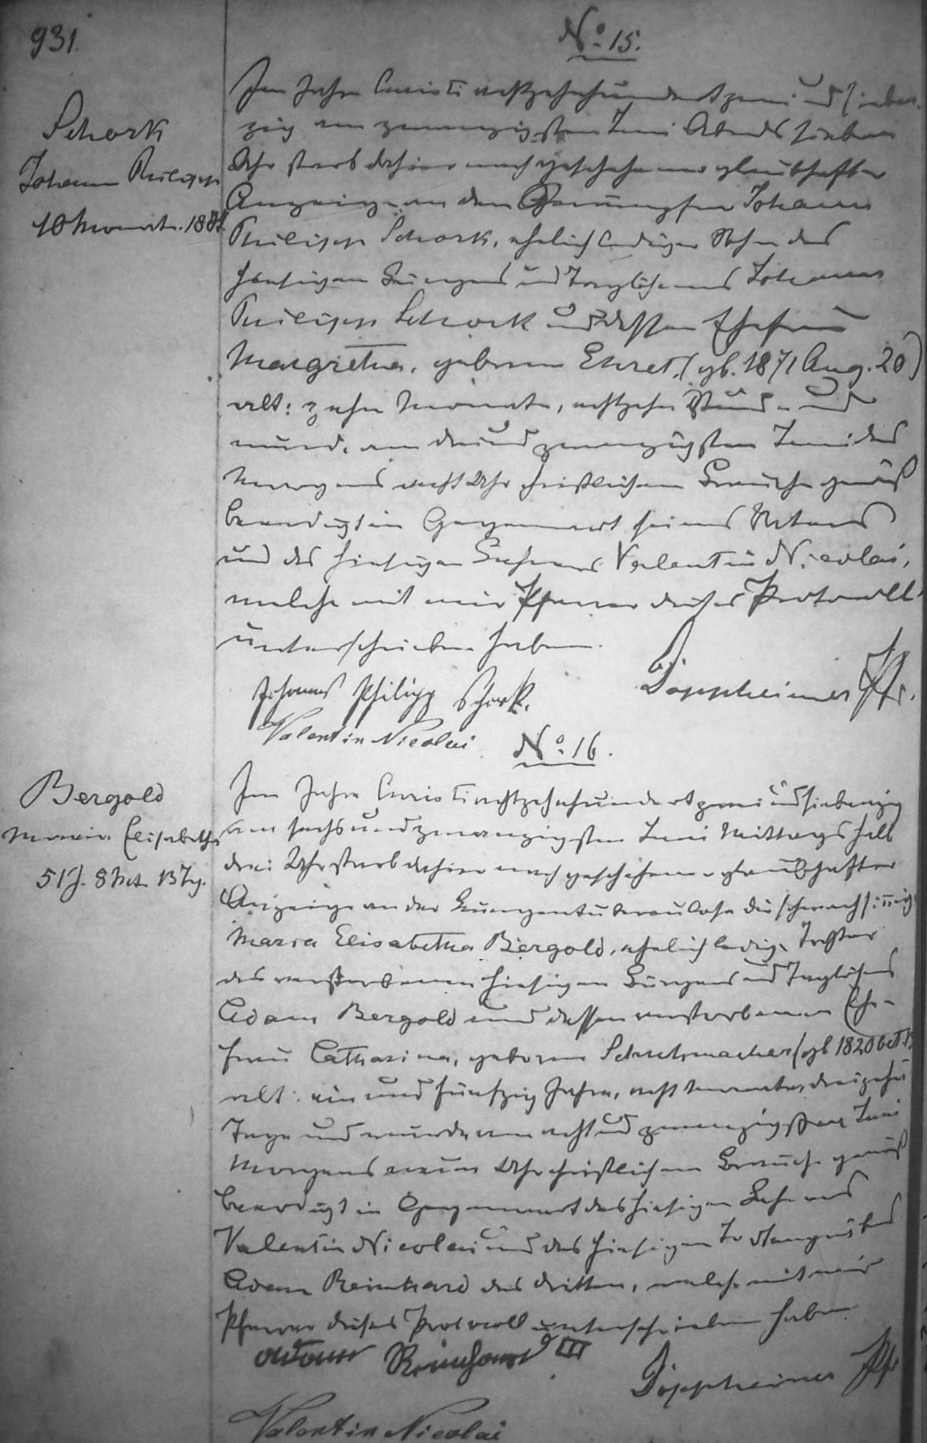 931.
No. 15.
Schork
Johann Philipp
10 Monate. 1871
Im Jahre Christi achtzehnhundert zwei und sieben-
zig am zwanzigsten Juni Abends sieben
Uhr starb dahier nach geschehener glaubhafter
Anzeige an den Johann
Philipp Schork, ehelich lediger Sohn des
hiesigen Bürgers und Taglöhners Johann
Philipp Schork und dessen Ehefrau
Margretha, geborene Ehret, (gb. 1871 Aug. 20)
alt: zehn Monate, achtzehn Stund. und
wurde am dreiundzwanzigsten Juni des
Morgens acht Uhr christlichem Brauche gemäß
beerdigt in Gegenwart seines Vaters
und des hiesigen Lehrers Valentin Nicolai,
welche mit mir Pfarrer dieses Protocoll
unterschrieben haben.
Johannes Philipp Schork.
Döppheimer Pfr.
Valentin Nicolai
No. 16.
Bergold
Maria Elisabetha
51 J. 8 Mt. 13 Tg.
Im Jahre Christi achtzehnhundert zwei und siebenzig
am sechsundzwanzigsten Juni Mittags halb
drei Uhr starb dahier nach geschehener glaubhafter
Anzeige an der Lungentuberculose die schwachsinnige
Maria Elisabetha Bergold, ehelich ledige Tochter
des verstorbenen hiesigen Bürgers und Taglöhners
Adam Bergold und dessen verstorbenen Ehe-
frau Catharina, geborene Schuhmacher (gb 1820 Oct 13
alt: ein und fünfzig Jahre, acht Monate, dreizehn
Tage und wurde am achtundzwanzigsten Juni
Morgens neun Uhr christlichem Brauche gemäß
beerdigt in Gegenwart des hiesigen Lehrers
Valentin Nicolai und des hiesigen Todtengräbers
Adam Reinhard des dritten, welche mit mir
Pfarrer dieses Protocoll unterschrieben haben.
Adam Reinhard III
Döppheimer Pfr
Valentin Nicolai